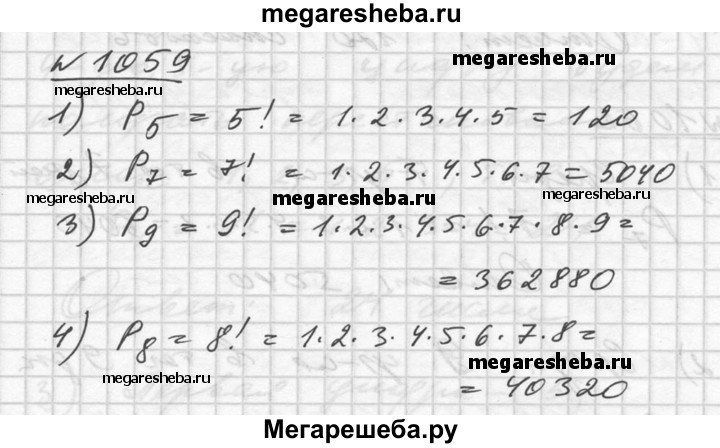 megaresheba.ru
№ 1059
megaresheba.ru
megaresheba.ru
1) P5 = 5! = 1·2·3·4·5 = 120
2) P7 = 7! = 1·2·3·4·5·6·7 = 5040
megaresheba.ru
megaresheba.ru
megaresheba.ru
3) P9 = 9! = 1·2·3·4·5·6·7·8·9 =
= 362880
4) P8 = 8! = 1·2·3·4·5·6·7·8 =
megaresheba.ru
megaresheba.ru
= 40320
Мегарешеба.ру